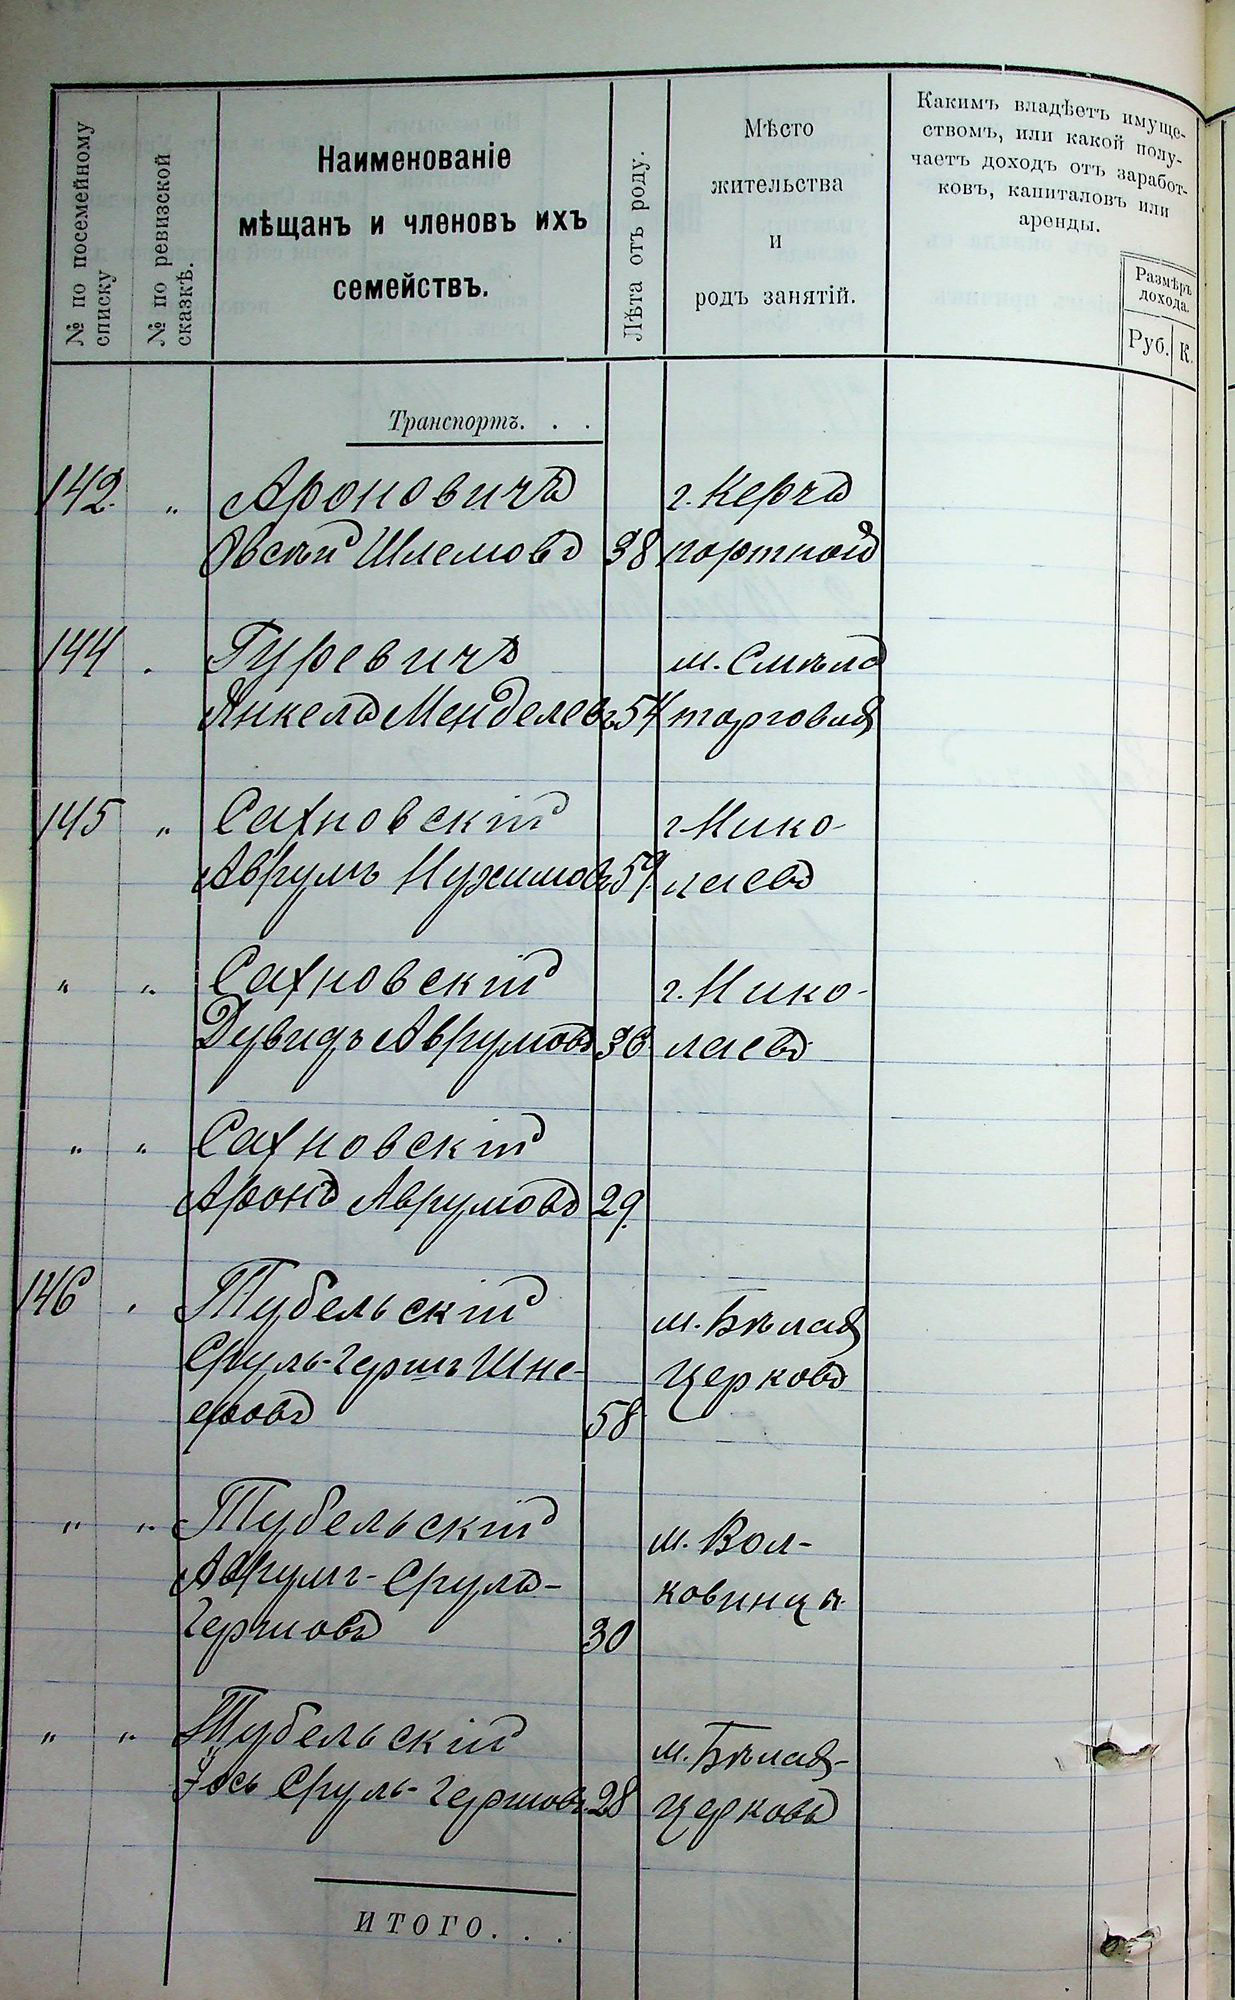 № по посемейному
списку
№ по ревизской
сказкѣ.
Наименованіе
мѣщанъ и членовъ ихъ
семействъ.
Лѣта отъ роду.
Мѣсто
жительства
и
родъ занятій.
Какимъ владѣетъ имуще-
ствомъ, или какой полу-
чаетъ доходъ отъ заработ-
ковъ, капиталовъ или
аренды.
Размѣръ
дохода.
Руб. К.
Транспортъ. . .
142. „ Ароновичъ г. Керчь
Овсѣй Шлемовъ 38 портной
144 „ Гуревичъ м. Смѣла
Янкель Менделевъ 54 торговля
145 „ Сахновскій г. Нико-
Аврумъ Нухимовъ 59. лаевъ
„ „ Сахновскій г. Нико-
Дувидъ Аврумовъ 36 лаевъ
„ „ Сахновскій
Аронъ Аврумовъ 29.
146 „ Тубельскій м. Бѣлая
Сруль-Гершъ Шне- Церковь
еровъ 58
„ „ Тубельскій м. Вол-
Аврумъ-Сруль- ковинцы
Гершовъ 30
„ „ Тубельскій м. Бѣлая-
Іось Сруль-Гершовъ 28 Церковь
ИТОГО. . .